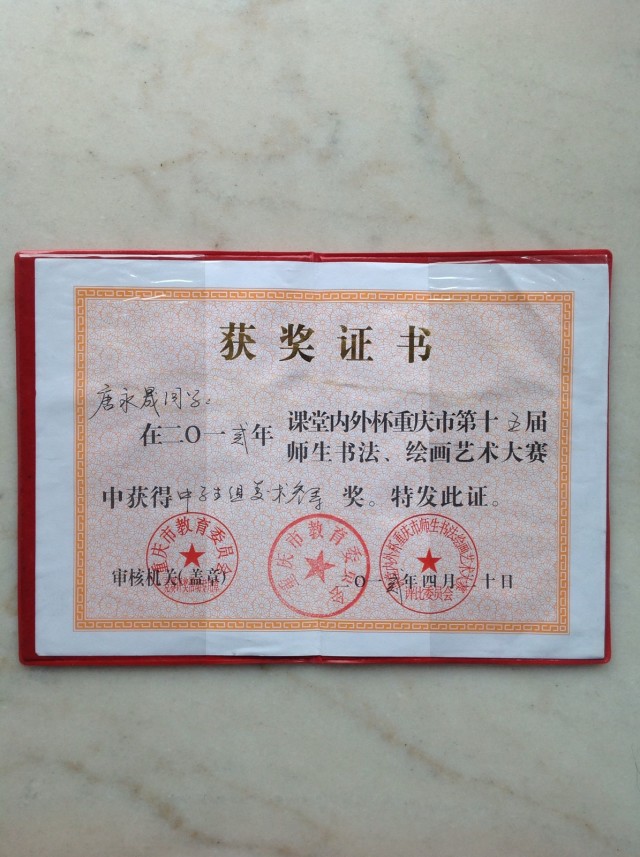 获奖证书
唐永晟同学：
在二〇一贰年 课堂内外杯重庆市第十五届
师生书法、绘画艺术大赛
中获得中学生组美术叁等奖。特发此证。
重庆市教育委员会
重庆市教育委员会
课堂内外杯重庆市师生书法绘画艺术大赛
评比委员会
审核机关(盖章)
二〇一贰年四月二十日